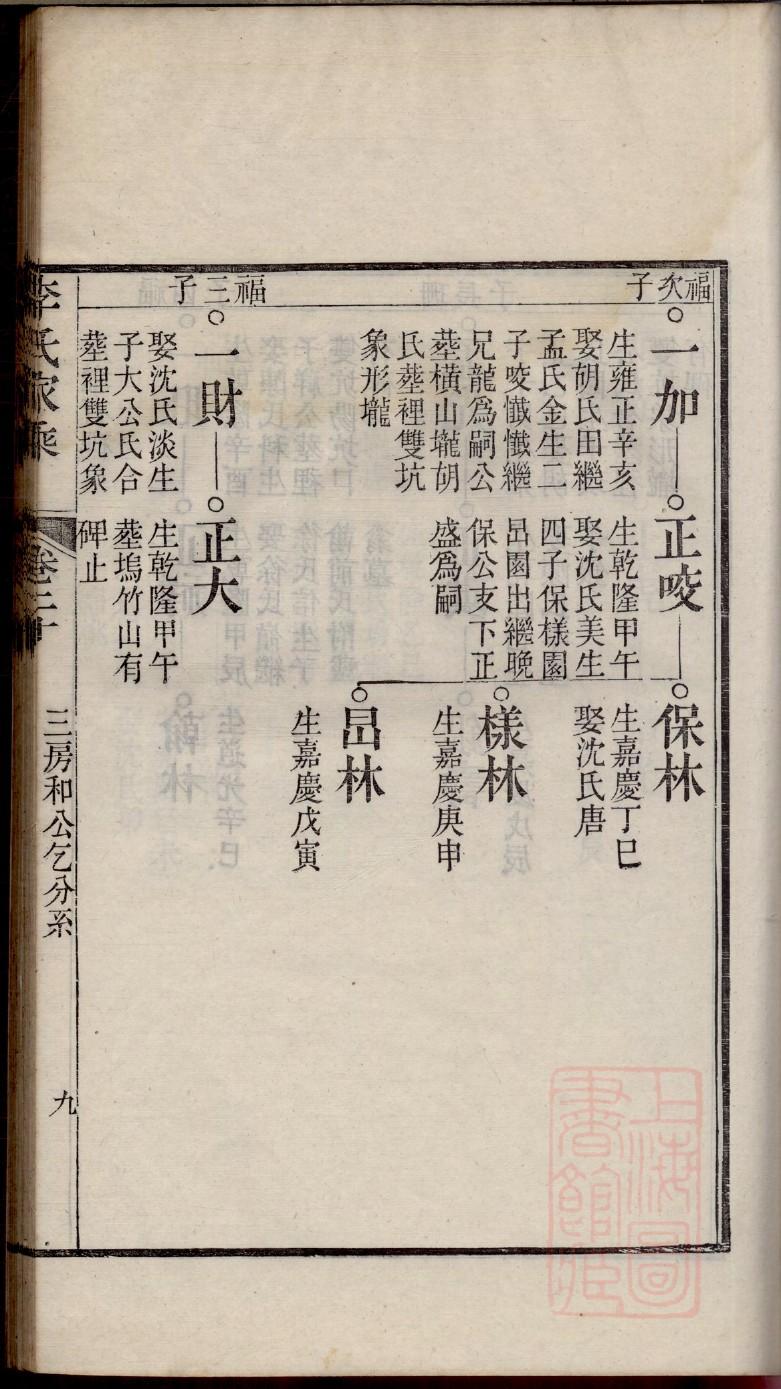 福次子
一加
生雍正辛亥
娶胡氏田繼
孟氏金生二
子咬懺懺繼
兄龍為嗣公
塟橫山壠胡
氏塟裡雙坑
象形壠
正咬
生乾隆甲午
娶沈氏美生
四子保樣園
岊園出繼晚
保公支下正
盛為嗣
保林
生嘉慶丁巳
娶沈氏唐
樣林
生嘉慶庚申
岊林
生嘉慶戊寅
福三子
一財
娶沈氏淡生
子大公氏合
塟裡雙坑象
正大
生乾隆甲午
塟塢竹山有
碑止
李氏家乘
卷二十
三房和公乞分系
九
上海圖
書館藏